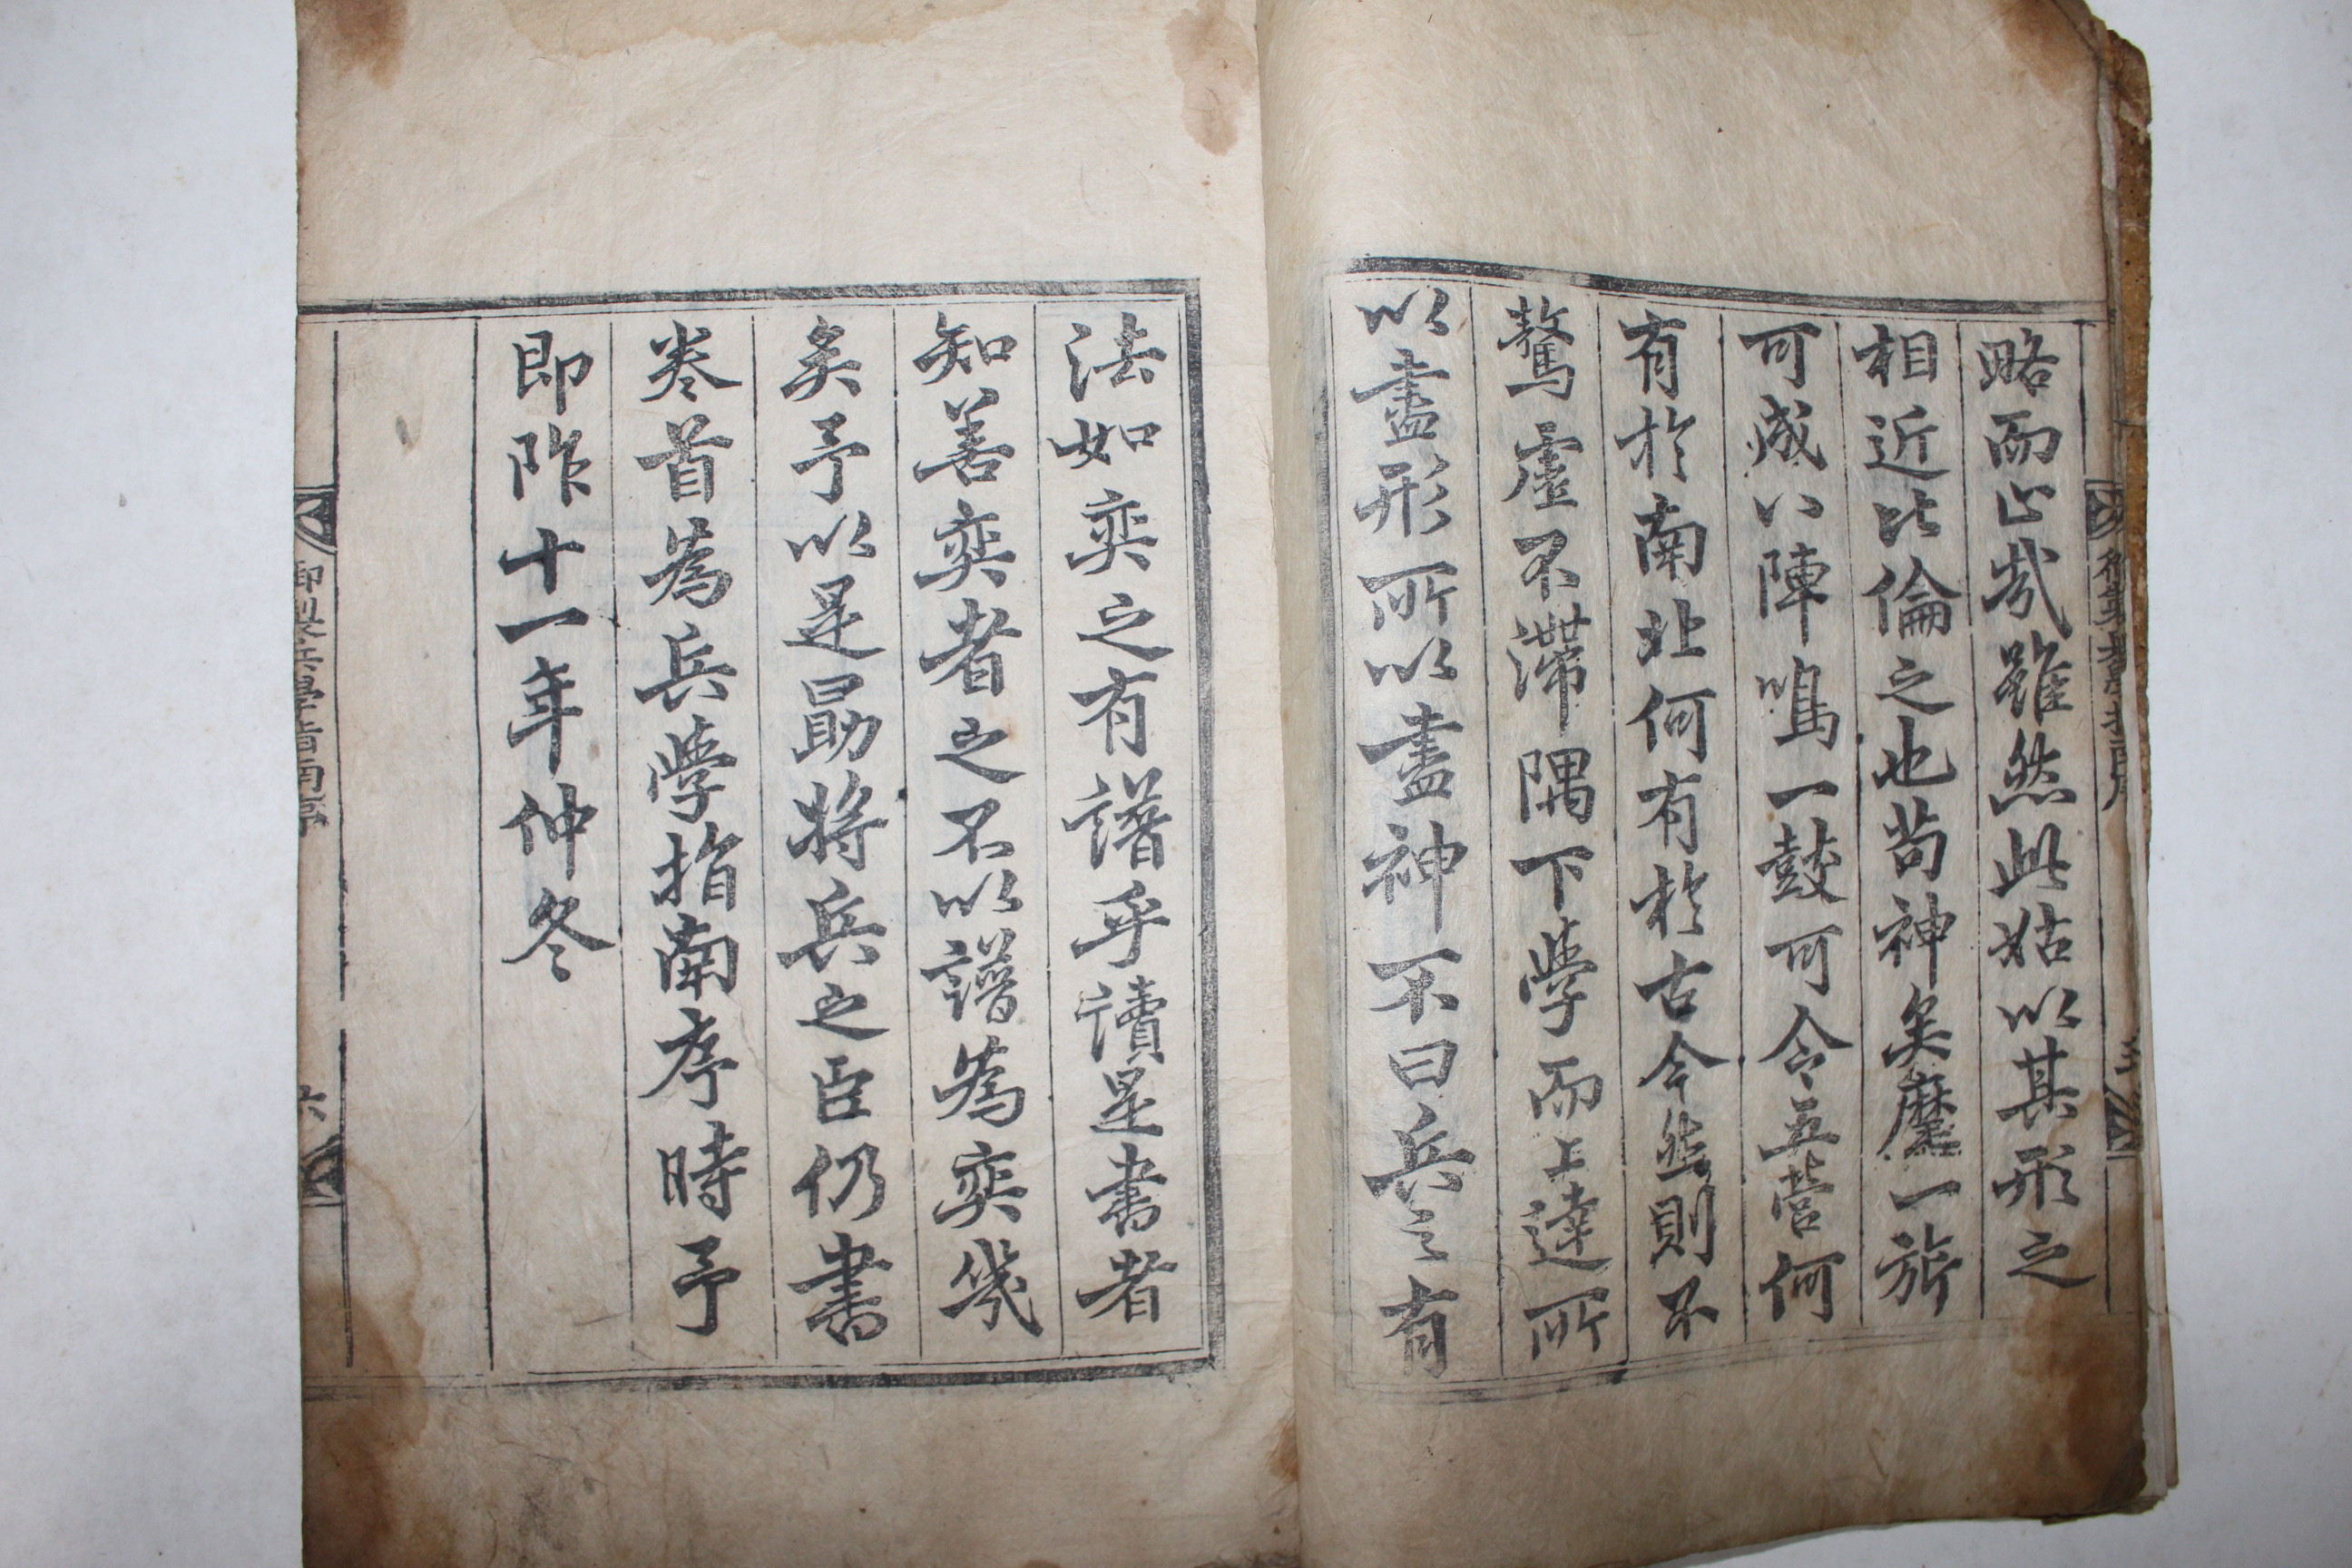 略而止哉雖然此姑以其形之
相近比倫之也苟神矣麾一旅
可成八陣鳴一鼓可令五營何
有於南北何有於古今然則不
騖虛不滯隅下學而上達所
以盡形所以盡神不曰兵之有
法如奕之有譜乎讀是書者
知善奕者之不以譜爲奕幾
矣予以是勗將兵之臣仍書
卷首爲兵學指南序時予
即阼十一年仲冬
御製兵學指南序
六